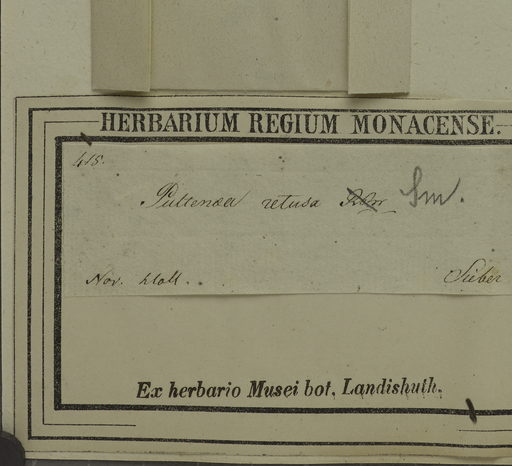 HERBARIUM REGIUM MONACENSE.
415.
Pultenaea retusa Sm.
Nov. Holl.
Sieber
Ex herbario Musei bot. Landishuth.